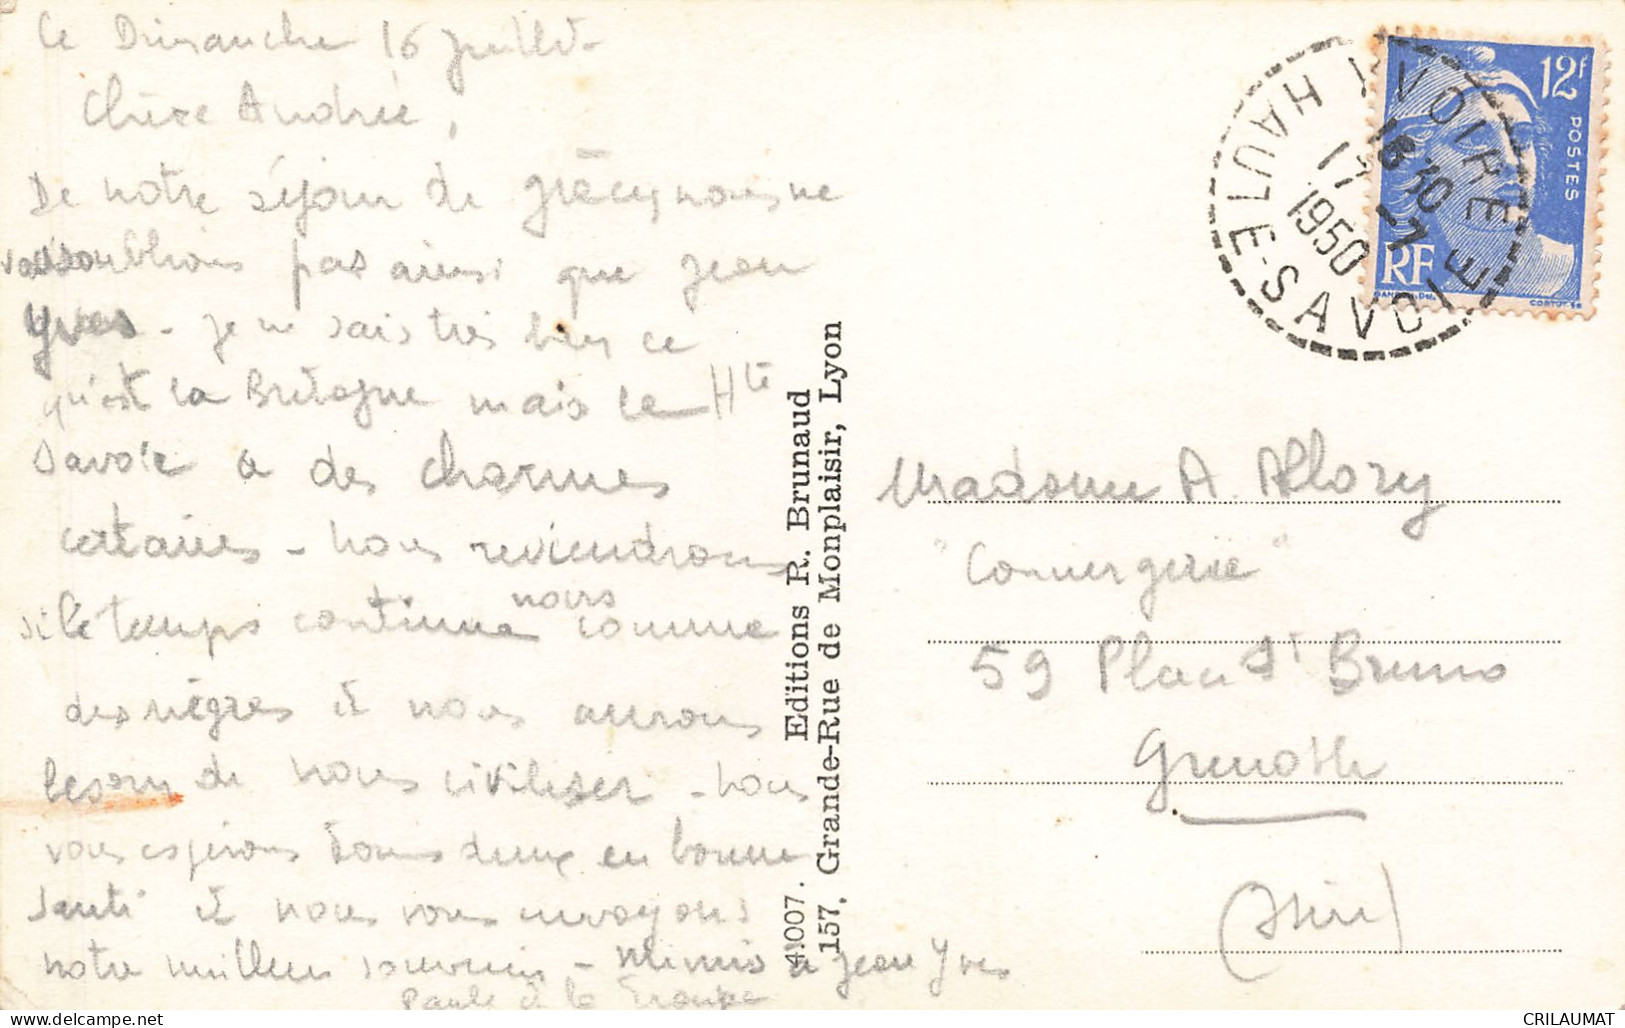 Ce Dimanche 16 Juillet -
Chère Andrée,
De notre séjour de Grécy nous ne
vous oublions pas ainsi que Jean
Yves - Je ne sais très bien ce
qu'est la Bretagne mais la Hte
Savoie a des charmes
certaines - Nous reviendrons
si le temps continue noirs comme
des nègres et nous aurons
besoin de nous civiliser - Nous
vous espérons tous deux en bonne
santé et nous vous envoyons
notre meilleur souvenir - Mimis à Jean Yves
Paule et la Troupe
4.007. Editions R. Brunaud
157, Grande-Rue de Monplaisir, Lyon
YVOIRE
HAUTE-SAVOIE
16 30
17 -7
1950
12F
POSTES
RF
Madame A. Allory
"Conciergerie"
59 Place St Bruno
Grenoble
(Isère)
CRILAUMAT